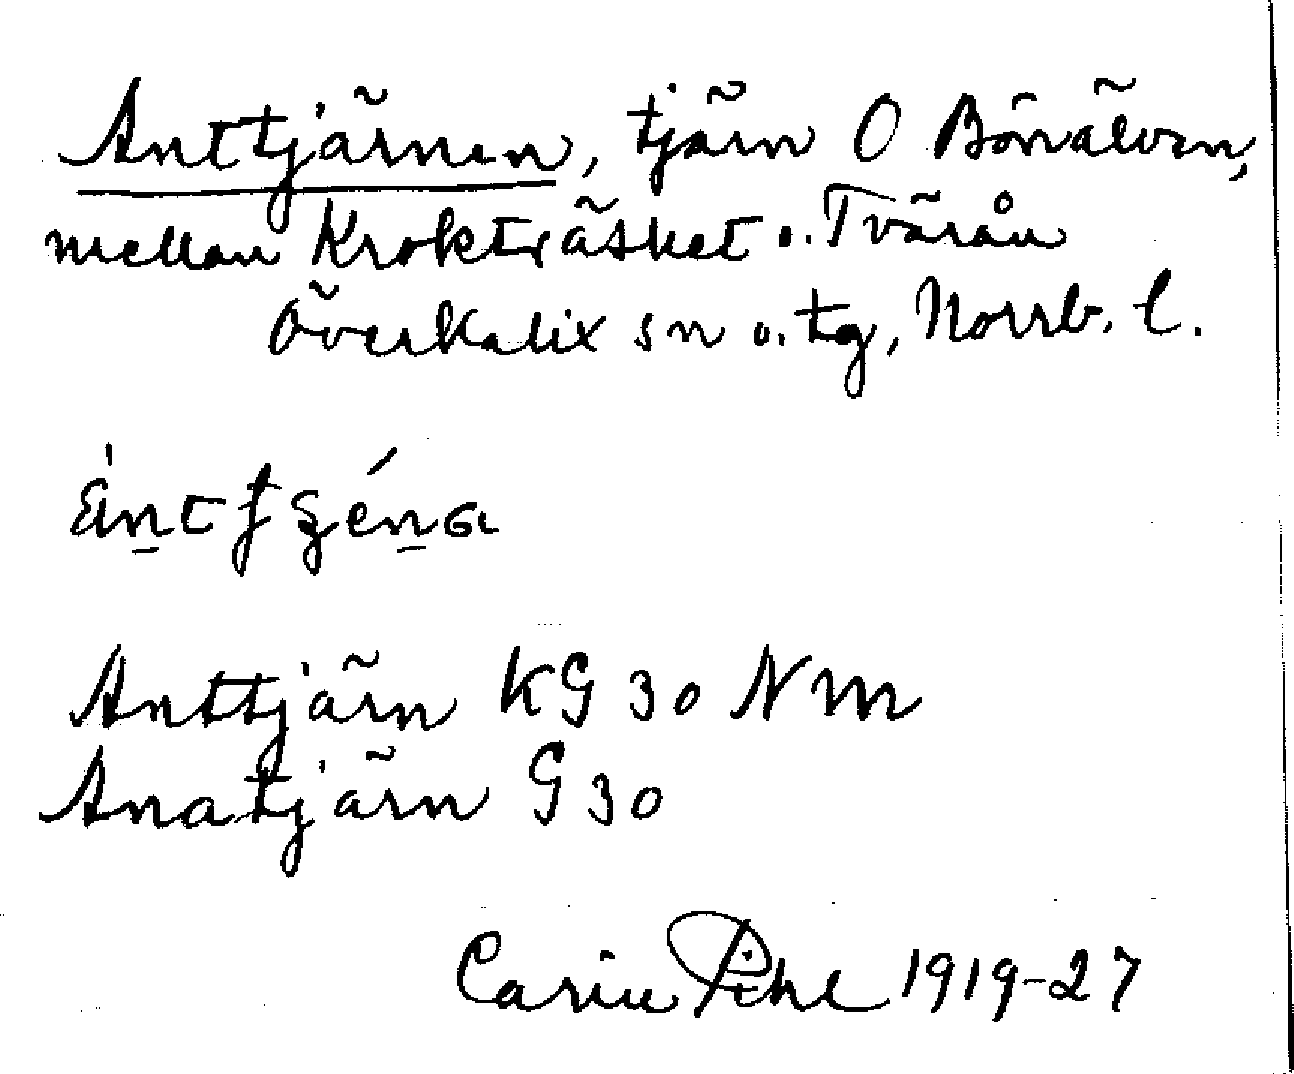 Anttjärnen, tjärn O Bönälven,
mellan Kroktträsket o. Tvärån
Överkalix sn o. tg, Norrb. l.
Anttjärn KG 30 NM
Anatjärn G 30
Carin Pihl 1919-27